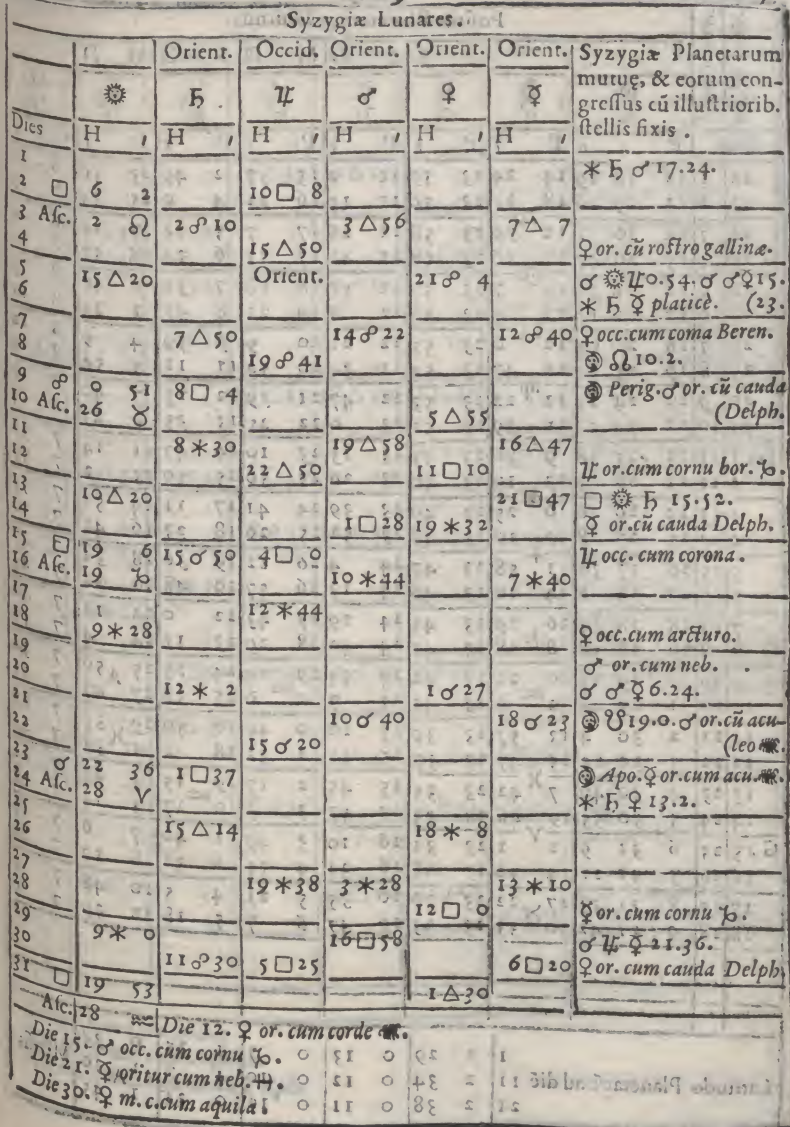 Syzygiæ Lunares.
Orient. Occid. Orient. Orient. Orient. Syzygiæ Planetarum
☼ ♄ ♃ ♂ ♀ ☿ mutuę, & eorum con-
gressus cū illustriorib.
Dies H ′ H ′ H ′ H ′ H ′ H ′ stellis fixis .
1 ⚹ ♄ ♂ 17.24.
2 □ 6 2 10 □ 8
3 Asc. 2 ♌ 2 ☍ 10 3 △ 56 7 △ 7
4 15 △ 50 ♀ or. cū rostro gallinæ.
5 15 △ 20 Orient. 21 ☍ 4 ☌ ☼ ♃ 0.54. ☌ ♂ ♀ 15.
6 ⚹ ♄ ☿ platicè. (23.
7 7 △ 50 14 ☍ 22 12 ☍ 40 ♀ occ.cum coma Beren.
8 19 ☍ 41 ☊ 10.2.
9 ☍ 0 51 8 □ 4 Perig. ♂ or. cū cauda
10 Asc. 26 ♉ 5 △ 55 (Delph.
11 8 ⚹ 30 19 △ 58 16 △ 47
12 22 △ 50 11 □ 10 ♃ or.cum cornu bor. ♑.
13 19 △ 20 21 □ 47 □ ☼ ♄ 15.52.
14 1 □ 28 19 ⚹ 32 ☿ or.cū cauda Delph.
15 □ 19 6 15 ☌ 50 4 □ 0 ♃ occ. cum corona .
16 Asc. 19 ♑ 10 ⚹ 44 7 ⚹ 40
17 12 ⚹ 44
18 9 ⚹ 28 ♀ occ.cum arcturo.
19 ♂ or.cum neb. .
20 12 ⚹ 2 1 ☌ 27 ☌ ♂ ☿ 6.24.
21 10 ☌ 40 18 ☌ 23 ☋ 19.0. ♂ or.cū acu-
22 15 ☌ 20 (leo ♏.
23 ☌ 22 36 1 □ 37 Apo. ☿ or.cum acu. ♏.
24 Asc. 28 ♈ ⚹ ♄ ♀ 13.2.
25 15 △ 14 18 ⚹ 8
26
27 19 ⚹ 38 3 ⚹ 28 13 ⚹ 10
28 12 □ 0 ☿ or. cum cornu ♑.
29 9 ⚹ 0 16 □ 58 ☌ ♃ ☿ 21.36.
30 11 ☍ 30 5 □ 25 6 □ 20 ♀ or. cum cauda Delph.
31 □ 19 53 1 △ 30
Asc. 28 ♒ Die 12. ♀ or. cum corde ♏.
Die 15. ♂ occ. cum cornu ♑.
Die 21. ☿ oritur cum neb.
Die 30. ♀ m. c.cum aquila